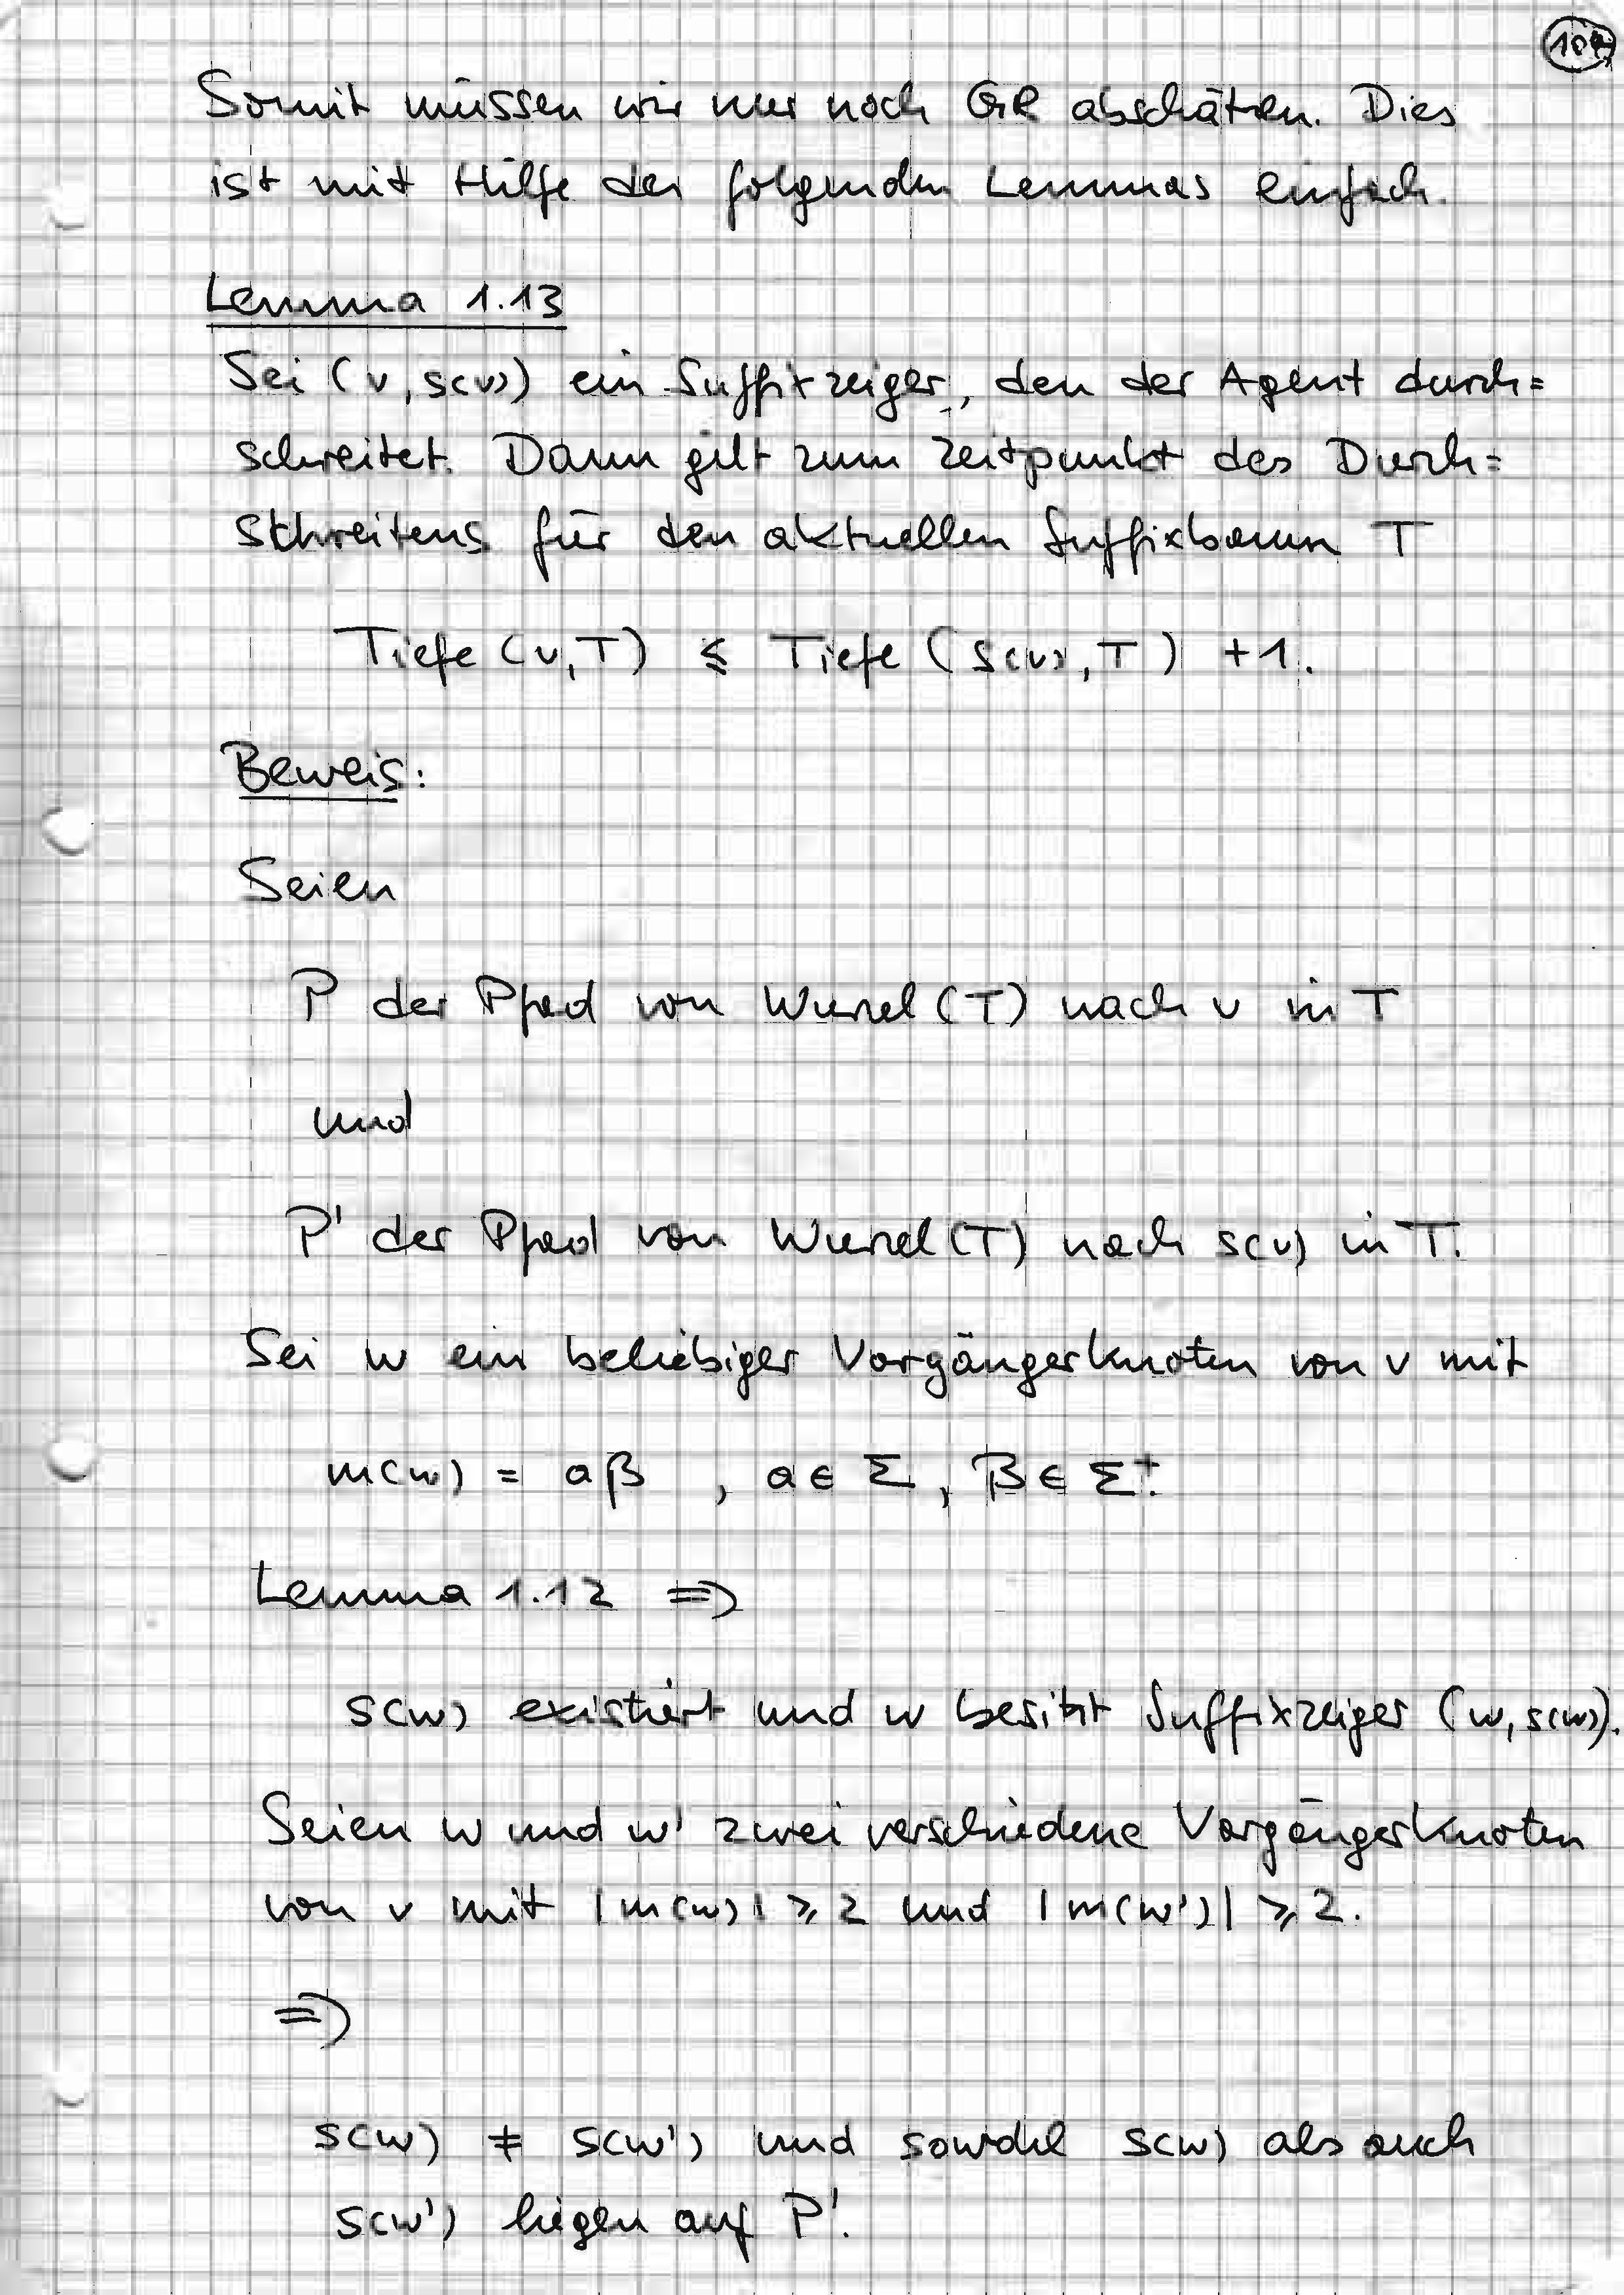 Somit müssen wir nur noch GR abschätzen. Dies
ist mit Hilfe des folgenden Lemmas einfach.
Lemma 1.13
Sei (v, s(v)) ein Suffixzeiger, den der Agent durch=
schreitet. Dann gilt zum Zeitpunkt des Durch=
schreitens für den aktuellen Suffixbaum T
Tiefe (v,T) ≤ Tiefe (s(v),T) +1.
Beweis:
Seien
P der Pfad von Wurzel(T) nach v in T
und
P' der Pfad von Wurzel(T) nach s(v) in T.
Sei w ein beliebiger Vorgängerknoten von v mit
m(w) = aβ , a ∈ Σ, β ∈ Σ⁺.
Lemma 1.12 ⇒
s(w) existiert und w besitzt Suffixzeiger (w, s(w)).
Seien w und w' zwei verschiedene Vorgängerknoten
von v mit |m(w)| ≥ 2 und |m(w')| ≥ 2.
⇒
s(w) ≠ s(w') und sowohl s(w) als auch
s(w') liegen auf P'.